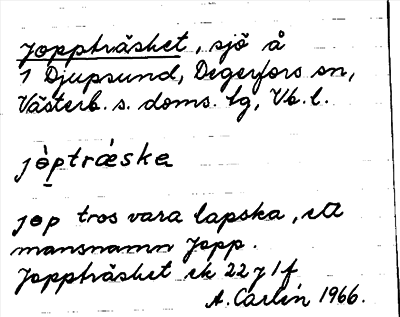 Joppträsket, sjö å
1 Djupsund, Degerfors sn,
Västerb. s. doms. lg, Vb. l.
jòptrǽske
jop tros vara lapska, ett
mansnamn Jopp.
Joppträsket ek 22 J 1 f
A. Carlin 1966.